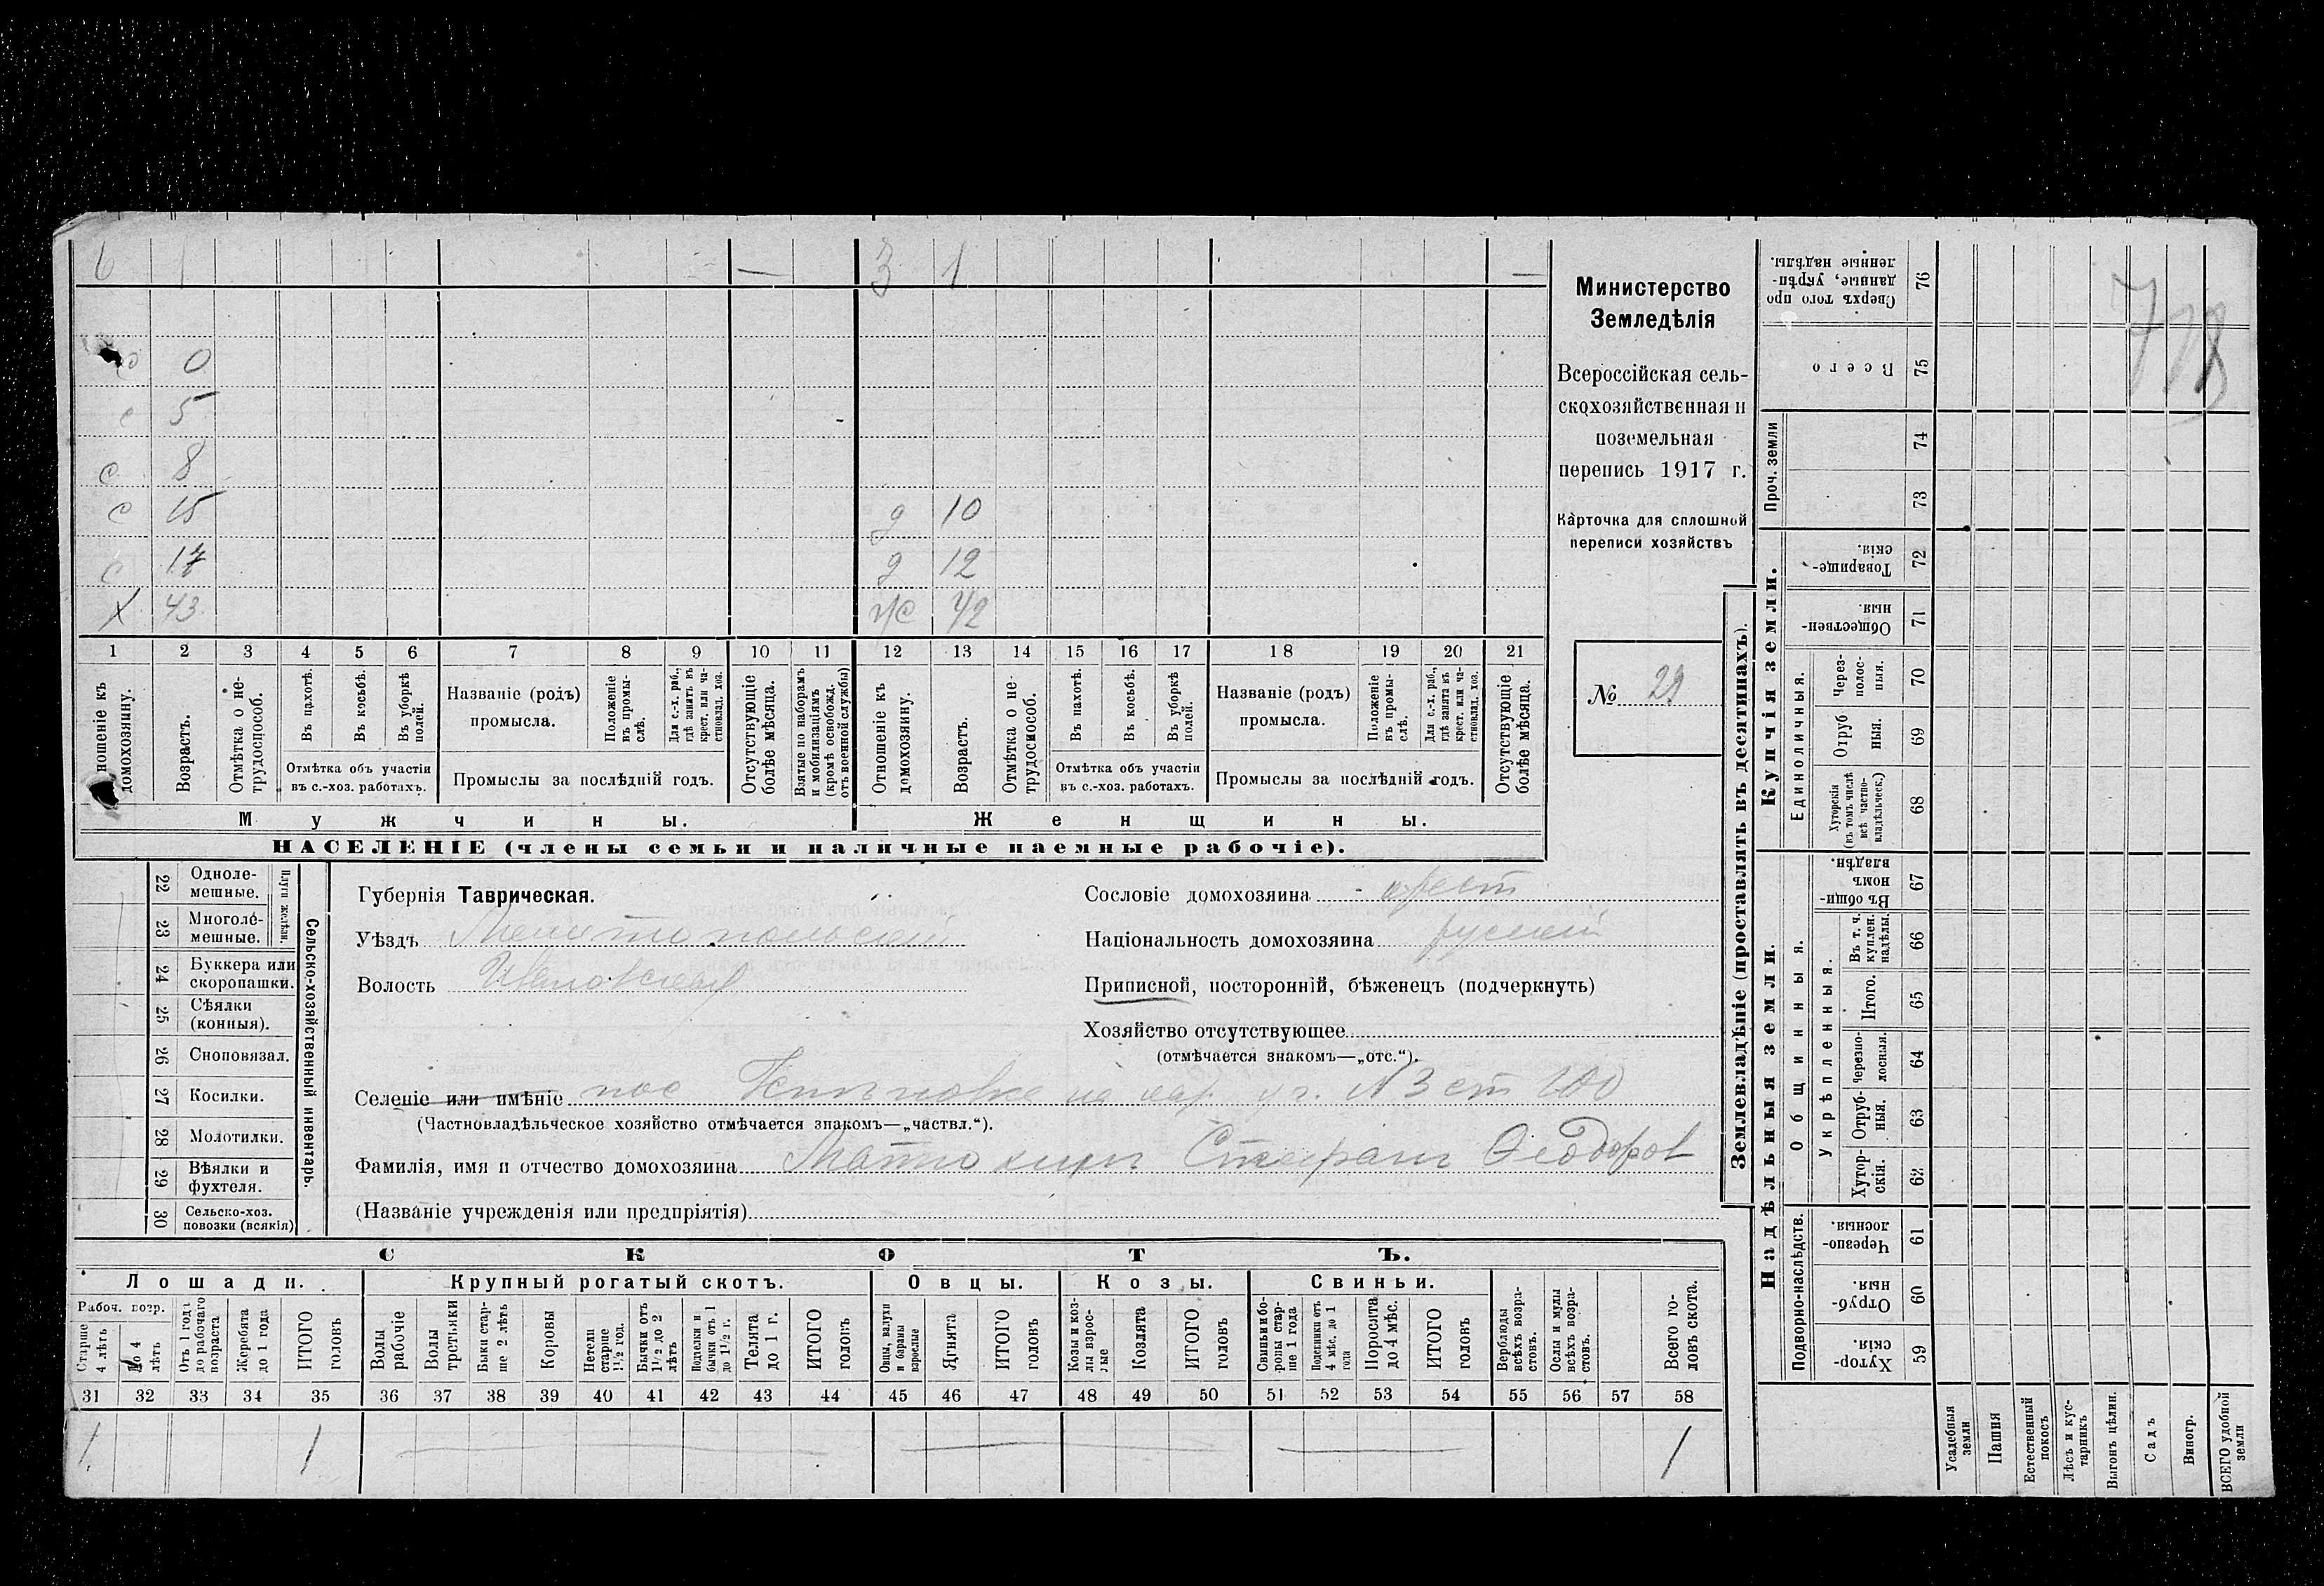 6 1 — 3 1 —
с 0
с 5
с 8
с 15 д 10
с 17 д 12
х 43 ж 42
1 2 3 4 5 6 7 8 9 10 11 12 13 14 15 16 17 18 19 20 21
ношеніе къ домохозяину.
Возрастъ.
Отмѣтка о не-
трудоспособ.
Въ пахотѣ.
Въ косьбѣ.
Въ уборкѣ
полей.
Отмѣтка объ участіи
въ с.-хоз. работахъ.
Названіе (родъ)
промысла.
Положеніе
въ промы-
слѣ.
Для с.-х. раб.,
гдѣ занятъ въ
крест. или ча-
стновлад. хоз.
Промыслы за послѣдній годъ.
Отсутствующіе
болѣе мѣсяца.
Взятые по наборамъ
и мобилизаціямъ
(кромѣ освобожд.
отъ военной службы)
Отношеніе къ
домохозяину.
Возрастъ.
Отмѣтка о не-
трудоспособ.
Въ пахотѣ.
Въ косьбѣ.
Въ уборкѣ
полей.
Отмѣтка объ участіи
въ с.-хоз. работахъ.
Названіе (родъ)
промысла.
Положеніе
въ промы-
слѣ.
Для с.-х. раб.,
гдѣ занята въ
крест. или ча-
стновлад. хоз.
Промыслы за послѣдній годъ.
Отсутствующіе
болѣе мѣсяца.
Мужчины.
Женщины.
НАСЕЛЕНІЕ (члены семьи и наличные наемные рабочіе).
Министерство
Земледѣлія
Всероссійская сель-
скохозяйственная и
поземельная
перепись 1917 г.
Карточка для сплошной
переписи хозяйствъ
№ 29
22 Одноле-
мешные.
23 Многоле-
мешные.
Плуги желѣзн.
24 Буккера или
скоропашки.
25 Сѣялки
(конныя).
26 Сноповязал.
27 Косилки.
28 Молотилки.
29 Вѣялки и
фухтеля.
30 Сельско-хоз.
повозки (всякія)
Сельско-хозяйственный инвентарь.
Губернія Таврическая.
Уѣздъ Мелитопольскій
Волость Ивановская
Сословіе домохозяина крест
Національность домохозяина русскій
Приписной, посторонній, бѣженецъ (подчеркнуть)
Хозяйство отсутствующее
(отмѣчается знакомъ—„отс.“).
Селеніе или имѣніе пос
(Частновладѣльческое хозяйство отмѣчается знакомъ—„частвл.“).
Фамилія, имя и отчество домохозяина Матюхинъ Стефанъ Ѳеодоров
(Названіе учрежденія или предпріятія)
СКОТЪ.
Лошади. Крупный рогатый скотъ. Овцы. Козы. Свиньи.
Рабоч. возр.
Старше
4 лѣтъ
До 4
лѣтъ
Отъ 1 года
до рабочаго
возраста
Жеребята
до 1 года
ИТОГО
головъ
Волы
рабочіе
Волы
третьяки
Быки стар-
ше 2 лѣтъ
Коровы
Нетели
старше
1½ год.
Бычки отъ
1½ до 2
лѣтъ
Подтелки и
бычки отъ 1
до 1½ г.
Телята
до 1 г.
ИТОГО
головъ
Овцы, валухи
и бараны
взрослые
Ягнята
ИТОГО
головъ
Козы и коз-
лы взрос-
лые
Козлята
ИТОГО
головъ
Свиньи и бо-
ровы стар-
ше 1 года
Подсвинки отъ
4 мѣс. до 1
года
Поросята
до 4 мѣс.
ИТОГО
головъ
Верблюды
всѣхъ возра-
стовъ.
Ослы и мулы
всѣхъ возра-
стовъ.
Всего го-
ловъ скота.
31 32 33 34 35 36 37 38 39 40 41 42 43 44 45 46 47 48 49 50 51 52 53 54 55 56 57 58
1 1 1
Землевладѣніе (проставлять въ десятинахъ).
Купчія земли.
Надѣльныя земли.
Сверхъ того про
данные, укрѣп-
ленные надѣлы. 76
Всего 75
Проч. земли
74
73
Товарище-
скія. 72
Обществен-
ныя. 71
Единоличныя.
Через-
полос-
ныя. 70
Отруб
ныя. 69
Хуторскія
(въ томъ числѣ
всѣ частно-
владѣльческ.) 68
Общинныя.
Въ общи-
номъ
владѣн. 67
Укрѣпленныя.
Въ т. ч.
куплен.
надѣлы. 66
Итого. 65
Черезпо-
лосныя. 64
Отруб-
ныя. 63
Хутор-
скія. 62
Подворно-наслѣдств.
Черезпо-
лосныя. 61
Отруб-
ныя. 60
Хутор-
скія. 59
Усадебныя
земли
Пашня
Естественный
покосъ
Лѣсъ и кус-
тарникъ
Выгонъ цѣлин.
Садъ
Виногр.
ВСЕГО удобной
земли